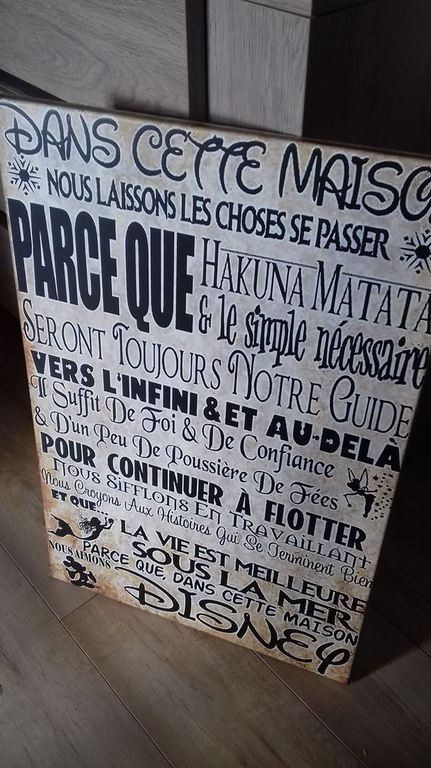 DANS CETTE MAISO
NOUS LAISSONS LES CHOSES SE PASSER
PARCE QUE HAKUNA MATATA
& le simple nécessaire
SERONT TOUJOURS NOTRE GUIDE
VERS L'INFINI & ET AU-DELÀ
Il Suffit De Foi & De Confiance
& D'un Peu De Poussière De Fées
POUR CONTINUER À FLOTTER
NOUS SIFFLONS EN TRAVAILLANT
Nous Croyons Aux Histoires Qui Se Terminent Bien
ET QUE...
LA VIE EST MEILLEURE
SOUS LA MER
PARCE QUE, DANS CETTE MAISON
NOUS AIMONS
DISNEY